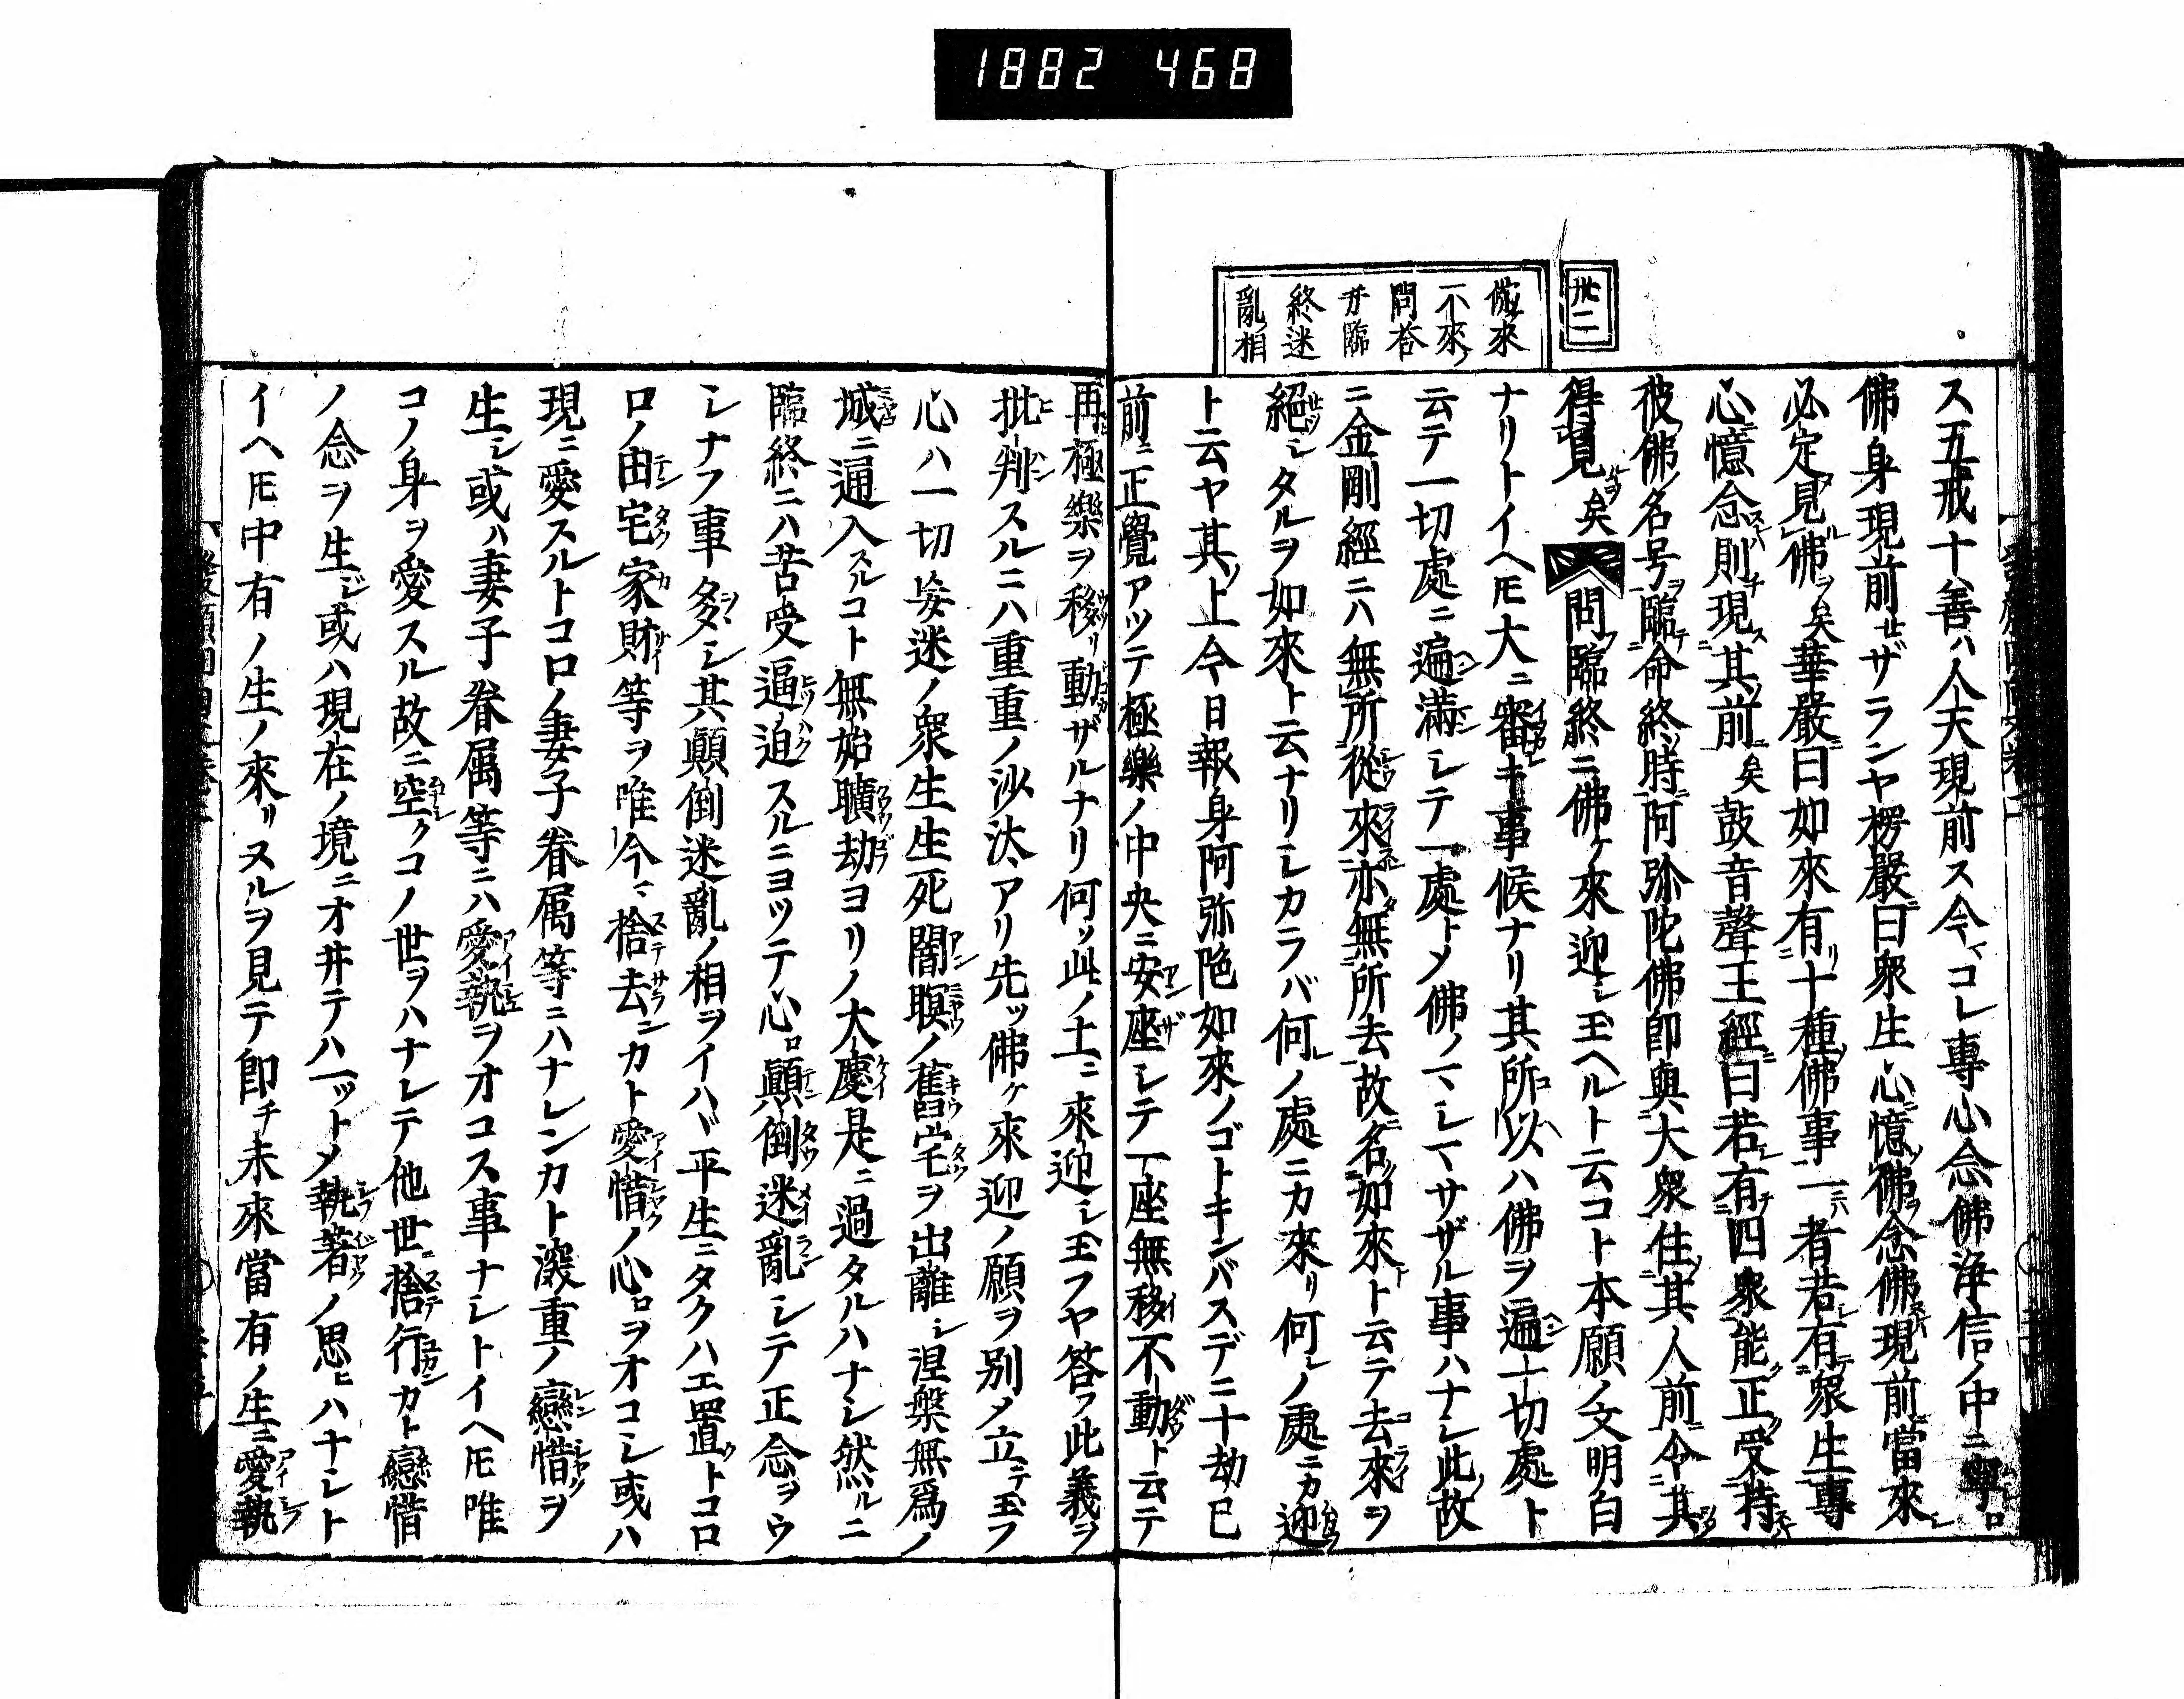 1882 468
卅二
従來
不來ノ
問荅
并臨
終迷
亂相
ス五戒十善ハ人天現前ス今マコレ專心念佛淨信ノ中ニ
佛身現前セザランヤ楞嚴ニ曰衆生心ニ憶佛ヲ念佛スレハ現前當來
必定見佛ヲ矣華嚴ニ曰如來有リ十種ノ佛事一ニハ者若シ有テ衆生專
心ニ憶念スレハ則チ現ス其ノ前ニ矣鼓音聲王經ニ曰若シ有テ四衆能ク正ク受持スレハ
彼佛ノ名号ヲ臨テ命終ノ時ニ阿弥陀佛即與大衆住ノ其ノ人前ニ令其ヲシテ
得見ルヿヲ矣問フ臨終ニ佛ケノ來迎シ玉ヘルト云コト本願ノ文明白
ナリトイヘ𪜈大ニ審キ事候ナリ其所以ハ佛ヲ遍一切處ト
云テ一切處ニ遍滿シテ一處トメ佛ノマシマサザル事ハナシ此ノ故
ニ金剛經ニハ無所從來亦無所去故名如來ト云テ去來ヲ
絕シタルヲ如來ト云ナリシカラバ何レノ處ニカ來リ何レノ處ニカ迎
ト云ヤ其ノ上今日報身阿弥陀如來ノゴトキンバスデニ十劫已
前ニ正覺アツテ極樂ノ中央ニ安座シテ一座無移不動ト云テ
再極樂ヲ移リ動ザルナリ何ッ此ノ土ニ來迎シ玉フヤ答フ此義ヲ
批判スルニハ重重ノ沙汰アリ先ッ佛ケ來迎ノ願ヲ別メ立テ玉フ
心ハ一切妄迷ノ衆生生死闇暝ノ舊宅ヲ出離シ涅槃無爲ノ
城ニ逼入スルコト無始曠劫ヨリノ大慶是ニ過タルハナシ然ルニ
臨終ニハ苦受逼迫スルニヨツテ心ロ顚倒迷亂シテ正念ヲウ
シナフ事多シ其顚倒迷亂ノ相ヲイハヾ平生ニタクハエ置トコロ
ロノ田宅家財等ヲ唯今マ捨去ンカト愛惜ノ心ロヲオコシ或ハ
現ニ愛スルトコロノ妻子眷属等ニハナレンカト深重ノ戀惜ヲ
生シ或ハ妻子眷属等ニハ愛執ヲオコス事ナシトイヘ𪜈唯
コノ身ヲ愛スル故ニ空クコノ世ヲハナレテ他世ニ捨行カト戀惜
ノ念ヲ生ジ或ハ現在ノ境ニオ井テハ一ットメ執著ノ思ヒハナシト
イヘ𪜈中有ノ生ノ來リスルヲ見テ即チ未來當有ノ生ニ愛執